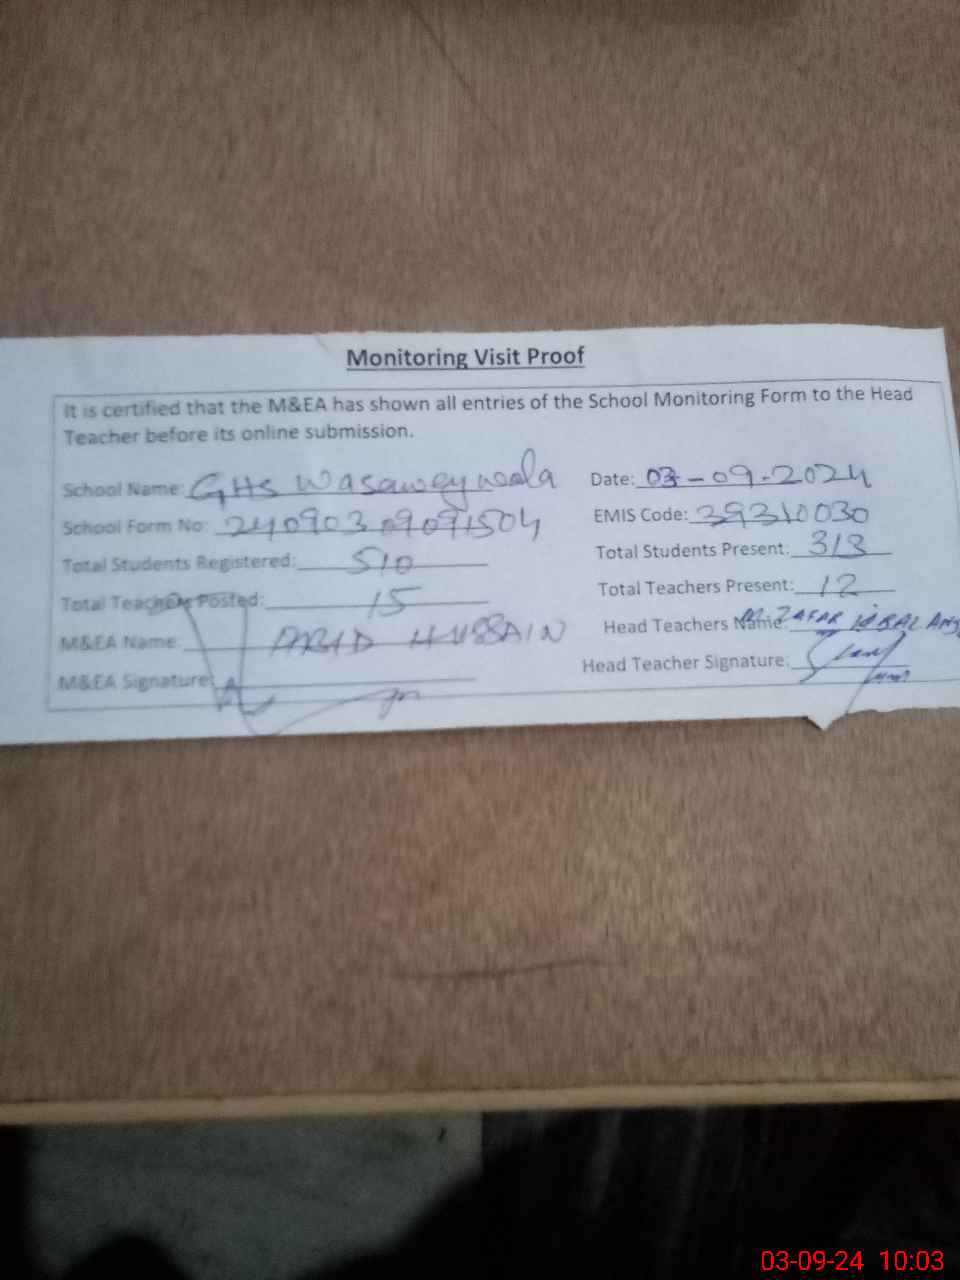 Monitoring Visit Proof
It is certified that the M&EA has shown all entries of the School Monitoring Form to the Head
Teacher before its online submission.
School Name: GHS Wasawey wala
Date: 03-09-2024
School Form No: 240903 09091504
EMIS Code: 39310030
Total Students Registered: 510
Total Students Present: 313
Total Teachers Posted: 15
Total Teachers Present: 12
M&EA Name: HUSSAIN
Head Teachers Name: M. ZAFAR IQBAL
M&EA Signature:
Head Teacher Signature:
03-09-24 10:03